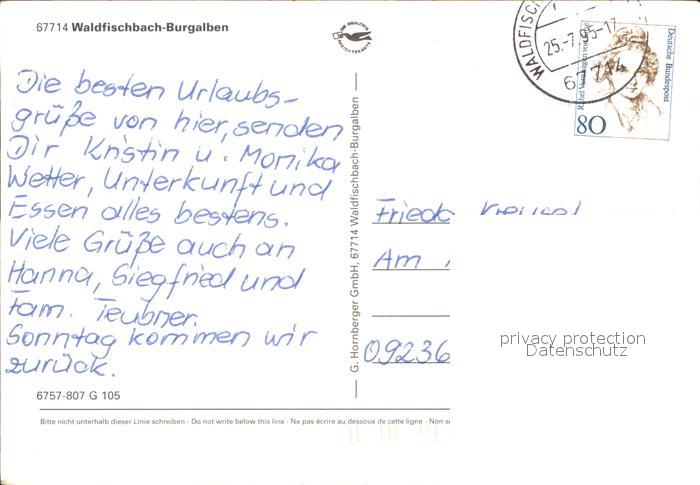 67714 Waldfischbach-Burgalben
WALDFISCH
25.-7.95-17
Deutsche Bundespost
80
Die besten Urlaubs-
grüße von hier, senden
Dir Kristin u. Monika
Wetter, Unterkunft und
Essen alles bestens.
Viele Grüße auch an
Hanna, Siegfried und
Fam. Teubner.
Sonntag kommen wir
zurück.
6757-807 G 105
G. Hornberger GmbH, 67714 Waldfischbach-Burgalben
Am
09236
privacy protection
Datenschutz
Bitte nicht unterhalb dieser Linie schreiben · Do not write below this line · Ne pas écrire au dessous de cette ligne · Non s